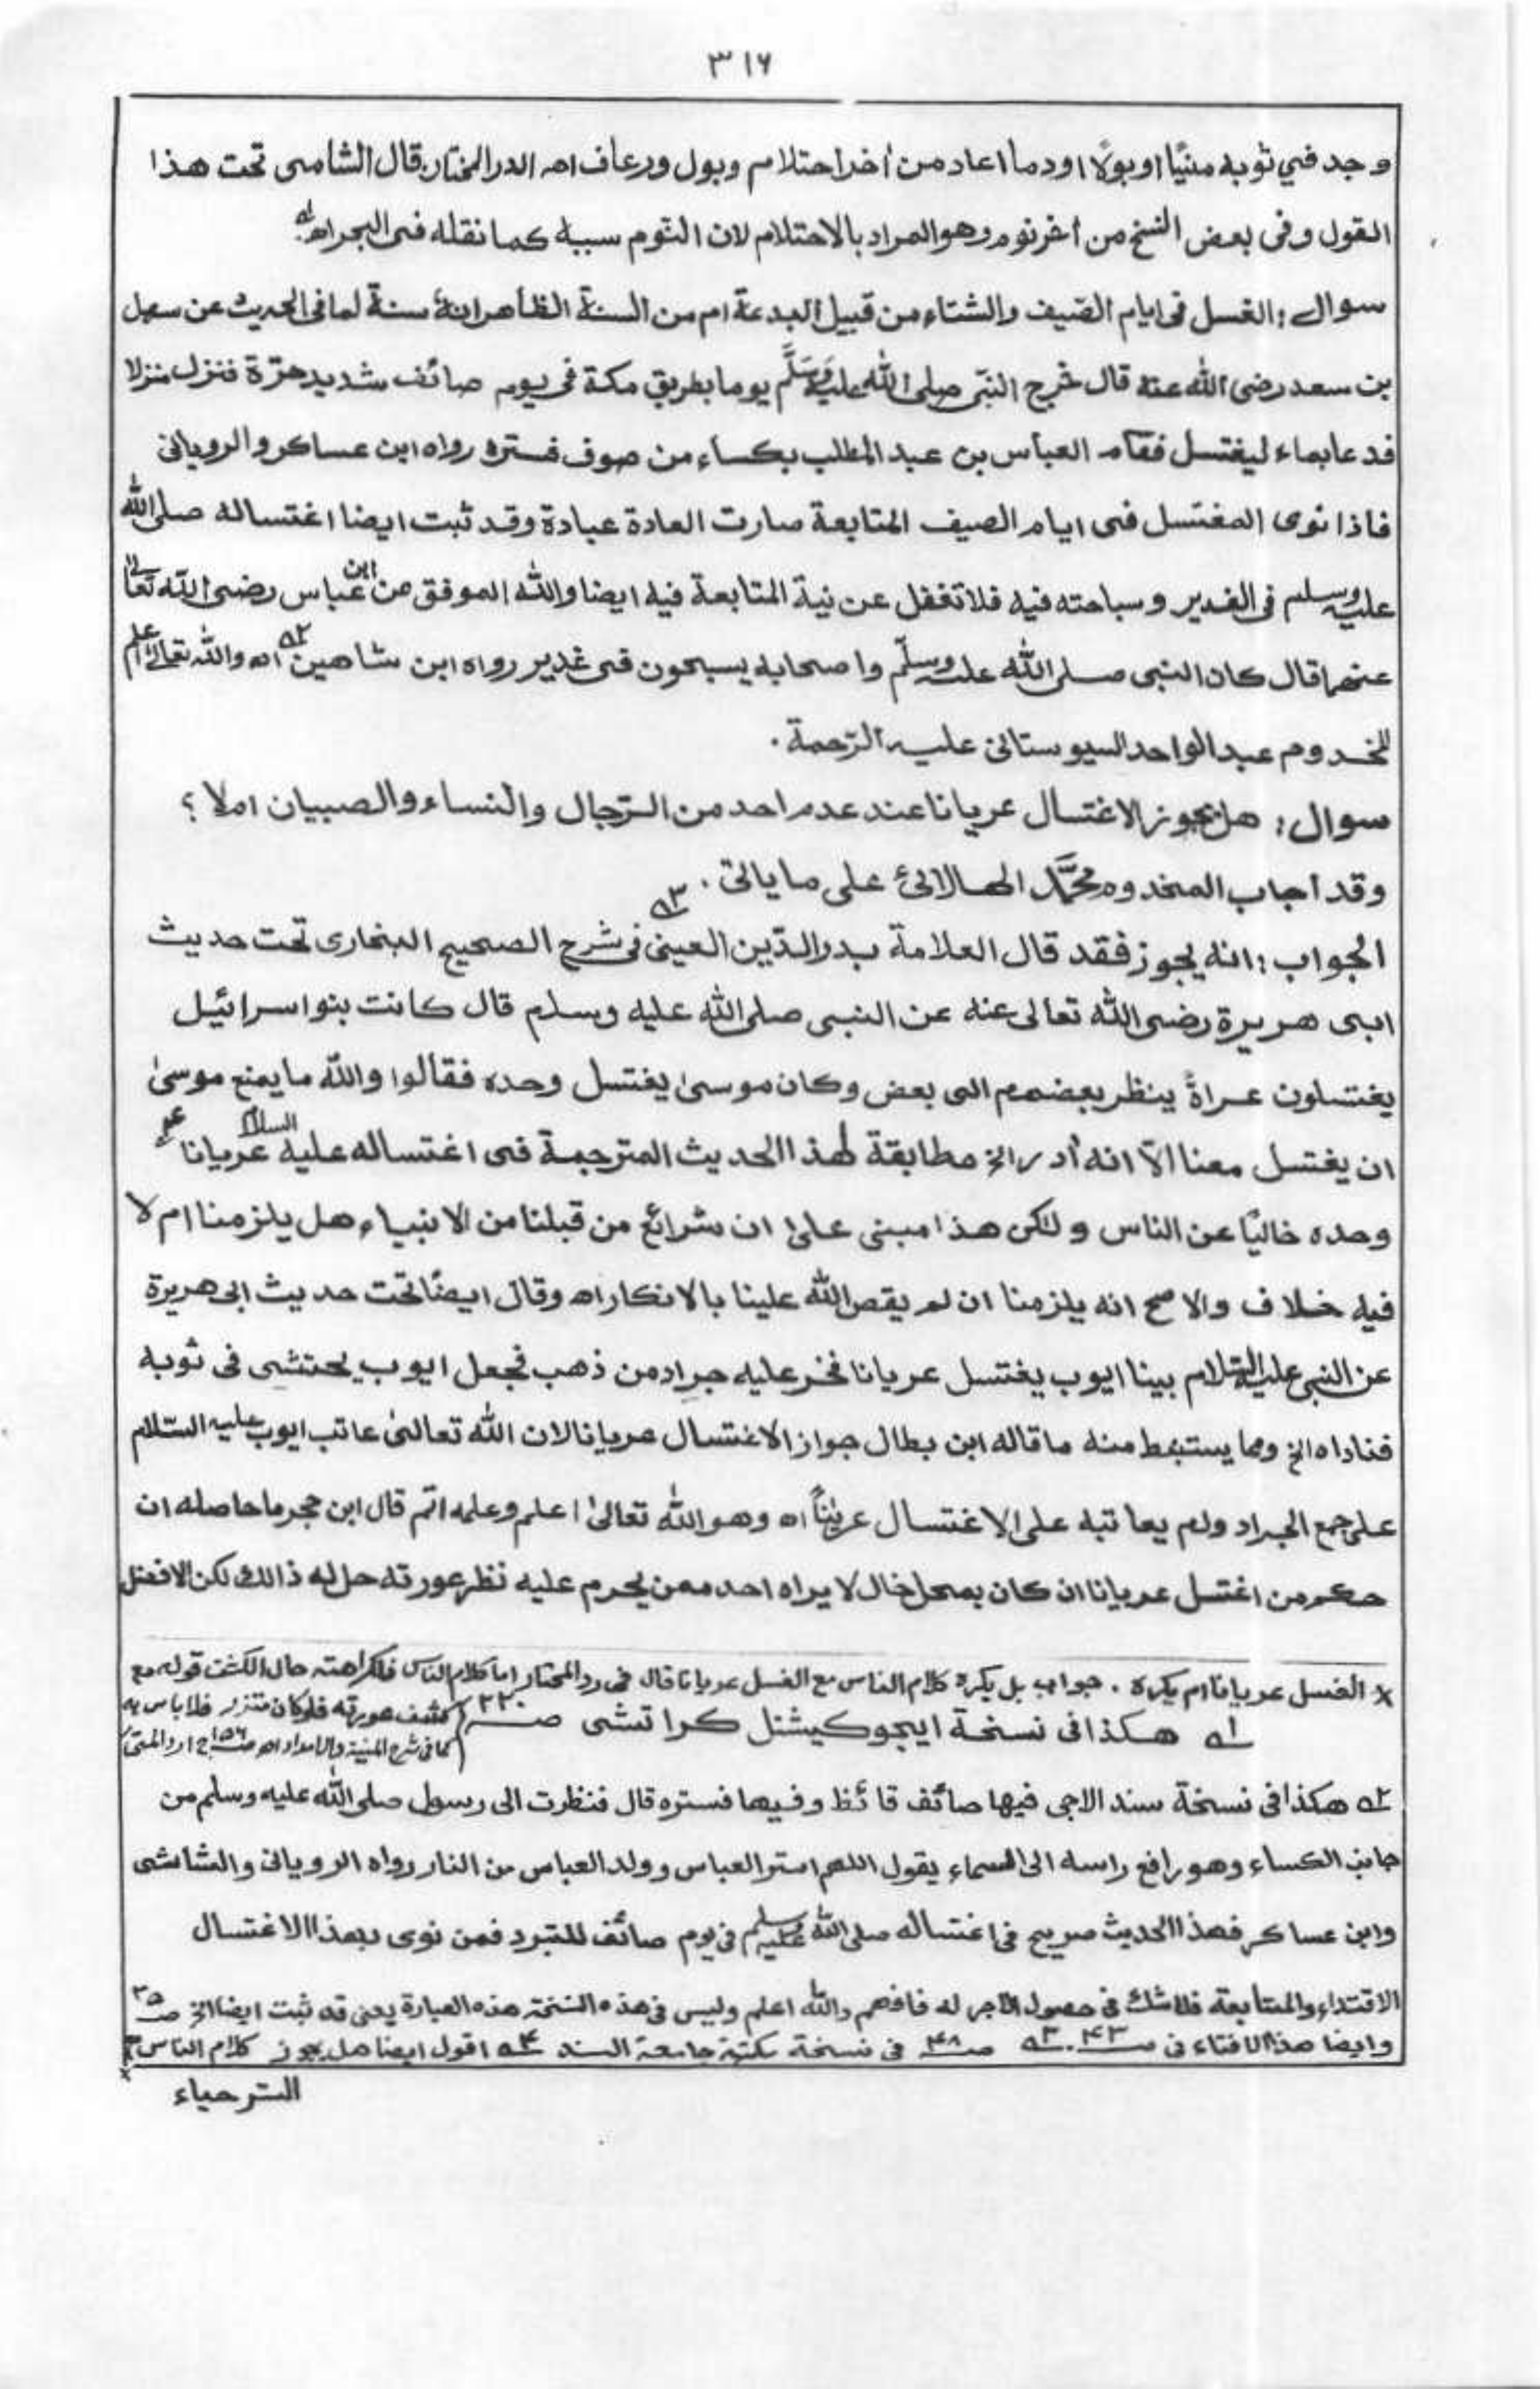 ٣١٦
وجد في ثوبه منيًا او بولًا او دما اعاد من أخر احتلام وبول ورعاف اه الدر المختار قال الشامى تحت هذا
القول وفى بعض النسخ من أخر نوم وهو المراد بالاحتلام لان النّوم سببه كما نقله فى البحر اه لـه
سوال: الغسل فى ايام الصّيف والشتاء من قبيل البدعة ام من السنة الظاهر انهٗ سنة لما فى الحديث عن سهل
بن سعد رضى الله عنه قال خرج النبّى صلى الله عليه وَسَلَّم يوما بطريق مكة فى يوم صائف شديد حرّة فنزل منزلا
فدعا بماء ليغتسل فقام العباس بن عبد المطلب بكساء من صوف فستره رواه ابن عساكر والرويانى
فاذا نوى المغتسل فى ايام الصيف المتابعة صارت العادة عبادة وقد ثبت ايضا اغتساله صلى الله
عليه وسلم فى الغدير وسباحته فيه فلا تغفل عن نية المتابعة فيه ايضا والله الموفق عن ابن عباس رضى الله تعالىٰ
عنهما قال كان النبى صلى الله عليه وسلّم واصحابه يسبحون فى غدير رواه ابن شاهين ٢ـه اه والله تعالىٰ اعلم
للمخدوم عبد الواحد السيوستانى عليه الرّحمة.
سوال: هل يجوز الاغتسال عريانا عند عدم احد من الرّجال والنساء والصبيان ام لا؟
وقد اجاب المخدوم محمَّد الهالائى على ما يالى.
الجواب: انه يجوز فقد قال العلامة بدر الدّين العينى ٣ـه فى شرح الصحيح البخارى تحت حديث
ابى هريرة رضى الله تعالى عنه عن النبى صلى الله عليه وسلم قال كانت بنو اسرائيل
يغتسلون عراةً ينظر بعضهم الى بعض وكان موسىٰ يغتسل وحده فقالوا والله ما يمنع موسىٰ
ان يغتسل معنا الّا انه أدر الخ مطابقة لهذا الحديث المترجمة فى اغتساله عليه السلام عريانا
وحده خاليًا عن الناس ولكن هذا مبنى علىٰ ان شرائع من قبلنا من الانبياء هل يلزمنا ام لا
فيه خلاف والاصح انه يلزمنا ان لم يقص الله علينا بالانكار اه وقال ايضًا تحت حديث ابى هريرة
عن النبى عليه السّلام بينا ايوب يغتسل عريانا فخر عليه جراد من ذهب فجعل ايوب يحتشى فى ثوبه
فناداه الخ ومما يستنبط منه ما قاله ابن بطال جواز الاغتسال عريانا لان الله تعالىٰ عاتب ايوب عليه السّلام
على جمع الجراد ولم يعاتبه على الاغتسال عريٰنًا اه وهو الله تعالىٰ اعلم وعلمه اتم قال ابن حجر ما حاصله ان
حكم من اغتسل عريانا ان كان بمحل خال لا يراه احد ممن يحرم عليه نظر عورته حل له ذالك لكن الافضل
× الغسل عريانا ام يكره. جواب بل يكره كلام الناس مع الغسل عريانا قال فى رد المحتار اما كلام الناس فلكراهته حال الكشف قوله مع
كشف عورته فلو كان متزر فلا باس به
كما فى شرح المنية والامداد اه صـ١٥٦ ج ١ رد المحتار
١ـه هكذا فى نسخة ايجوكيشنل كراتشى صـ٢٢٠
٢ـه هكذا فى نسخة سند الاجى فيها صائف قائظ وفيها فستره قال فنظرت الى رسول صلى الله عليه وسلم من
جانب الكساء وهو رافع راسه الى السماء يقول اللهم استر العباس وولد العباس من النار رواه الرويانى والشاشى
وابن عساكر فهذا الحديث صريح فى اغتساله صلى الله عليه وسلم فى يوم صائف للتبرد فمن نوى بهذا الاغتسال
الاقتداء والمتابعة فلا شك فى حصول الاجر له فافهم والله اعلم وليس فى هذه النسخة هذه العبارة يعنى قد ثبت ايضا الخ صـ٣٥
وايضا هذا الافتاء فى صـ٤٣. ٣ـه صـ٤٨ فى نسخة مكتبة جامعة السند ٤ـه اقول ايضا هل يجوز كلام الناس
الستر حياء